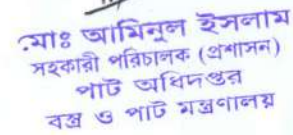 মোঃ আমিনুল ইসলাম
সহকারী পরিচালক (প্রশাসন)
পাট অধিদপ্তর
বস্ত্র ও পাট মন্ত্রণালয়